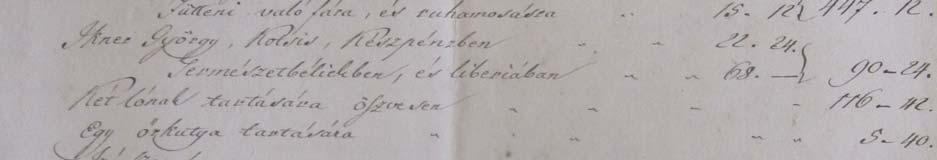 Fűtteni való fára, és ruhamosásra " 15. 12 447. 12.
György, Kotsis, Készpénzben " " 22. 24.
Természetbéliekben, és liberiában " " 68. — 90-24.
Két lónak tartására öszvesen " " " " " 116-42.
Egy őrkutya tartására " " " " 5-40.